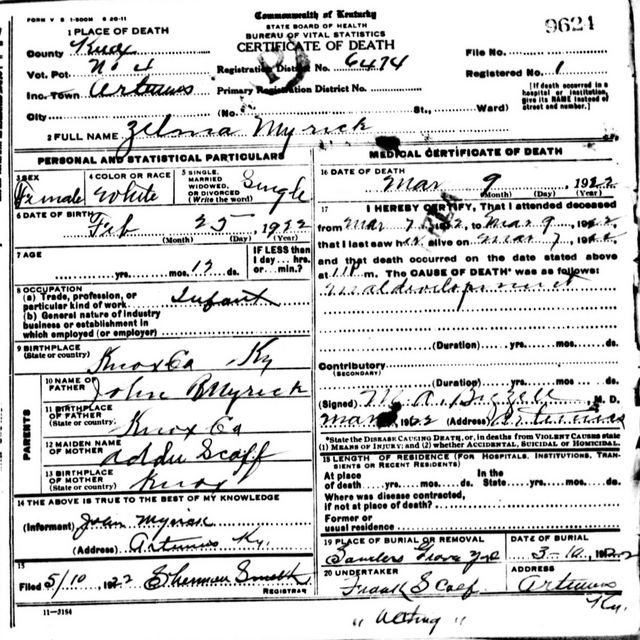 FORM V S 1-500M 6 20-11
Commonwealth of Kentucky
STATE BOARD OF HEALTH
BUREAU OF VITAL STATISTICS
CERTIFICATE OF DEATH
9624
1 PLACE OF DEATH
County Knox
Vot. Pct. No 4
Inc. Town Artemus
City
Registration District No. 6474
Primary Registration District No.
(No. St., Ward)
File No.
Registered No. 1
[If death occurred in a hospital or institution, give its NAME instead of street and number.]
2 FULL NAME Zelma Myrick
PERSONAL AND STATISTICAL PARTICULARS
3 SEX
Female
4 COLOR OR RACE
White
5 SINGLE, MARRIED WIDOWED, OR DIVORCED (Write the word)
Single
6 DATE OF BIRTH
Feb 25, 1922
(Month) (Day) (Year)
7 AGE
yrs. mos. 12 ds.
IF LESS than 1 day... hrs. or min.?
8 OCCUPATION
(a) Trade, profession, or particular kind of work Infant
(b) General nature of industry business or establishment in which employed (or employer)
9 BIRTHPLACE
(State or country) Knox Co Ky
PARENTS
10 NAME OF FATHER John B Myrick
11 BIRTHPLACE OF FATHER (State or country) Knox Co
12 MAIDEN NAME OF MOTHER Addie Scalf
13 BIRTHPLACE OF MOTHER (State or country) Knox
14 THE ABOVE IS TRUE TO THE BEST OF MY KNOWLEDGE
(Informant) John Myrick
(Address) Artemus Ky.
15
Filed 5/10 1922 Sherman Smith
REGISTRAR
11-3184
MEDICAL CERTIFICATE OF DEATH
16 DATE OF DEATH
Mar 9 1922
(Month) (Day) (Year)
17 I HEREBY CERTIFY, That I attended deceased
from Mar 7 1922, to Mar 9, 1922,
that I last saw her alive on Mar 7, 1922
and that death occurred on the date stated above
at 11P m. The CAUSE OF DEATH* was as follows:
Maldevelopment
(Duration) yrs. mos. ds.
Contributory
(SECONDARY)
(Duration) yrs. mos. ds.
(Signed) M. D.
Mar 1922 (Address) Artemus
*State the DISEASE CAUSING DEATH, or, in deaths from VIOLENT CAUSES state (1) MEANS OF INJURY; and (2) whether ACCIDENTAL, SUICIDAL or HOMICIDAL.
18 LENGTH OF RESIDENCE (FOR HOSPITALS, INSTITUTIONS, TRANSIENTS OR RECENT RESIDENTS)
At place of death yrs. mos. ds. In the State yrs. mos. ds.
Where was disease contracted, if not at place of death?
Former or usual residence
19 PLACE OF BURIAL OR REMOVAL
DATE OF BURIAL
3-10, 1922
20 UNDERTAKER
Frank Scalf
ADDRESS
Artemus Ky.
"Acting"